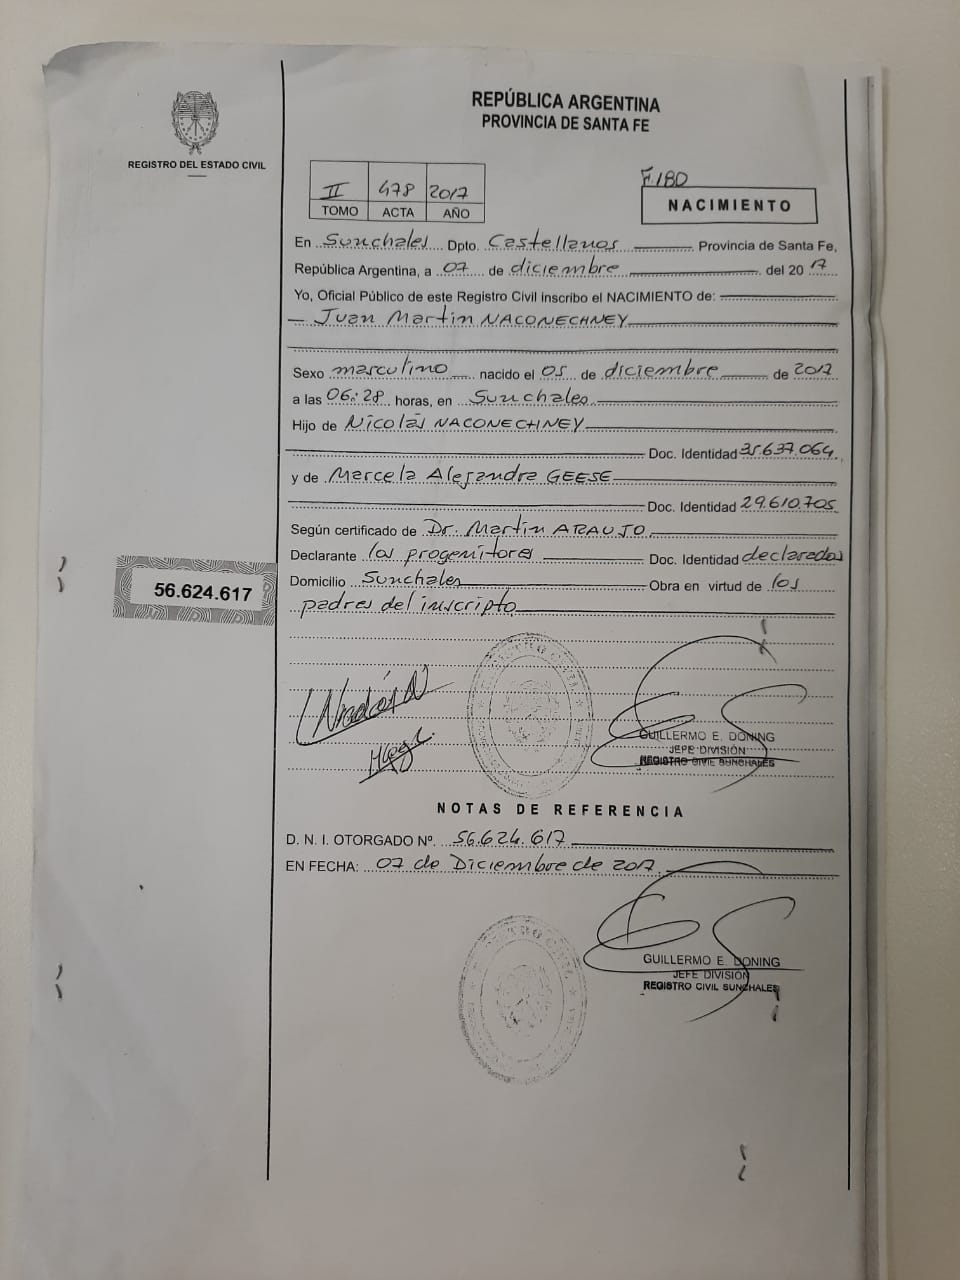 REPÚBLICA ARGENTINA
PROVINCIA DE SANTA FE
REGISTRO DEL ESTADO CIVIL
II 478 2017
TOMO ACTA AÑO
F.180
NACIMIENTO
En Sunchales Dpto. Castellanos Provincia de Santa Fe,
República Argentina, a 07 de diciembre del 2017
Yo, Oficial Público de este Registro Civil inscribo el NACIMIENTO de:
Juan Martin NACONECHNEY
Sexo masculino nacido el 05 de diciembre de 2017
a las 06:28 horas, en Sunchales
Hijo de Nicolás NACONECHNEY
Doc. Identidad 35.637.064
y de Marcela Alejandra GEESE
Doc. Identidad 29.610.705
Según certificado de Dr. Martin ARAUJO
Declarante los progenitores Doc. Identidad declarados
Domicilio Sunchales Obra en virtud de los
padres del inscripto
56.624.617
GUILLERMO E. DONING
JEFE DIVISIÓN
REGISTRO CIVIL SUNCHALES
NOTAS DE REFERENCIA
D. N. I. OTORGADO Nº. 56.624.617
EN FECHA: 07 de Diciembre de 2017
GUILLERMO E. DONING
JEFE DIVISIÓN
REGISTRO CIVIL SUNCHALES